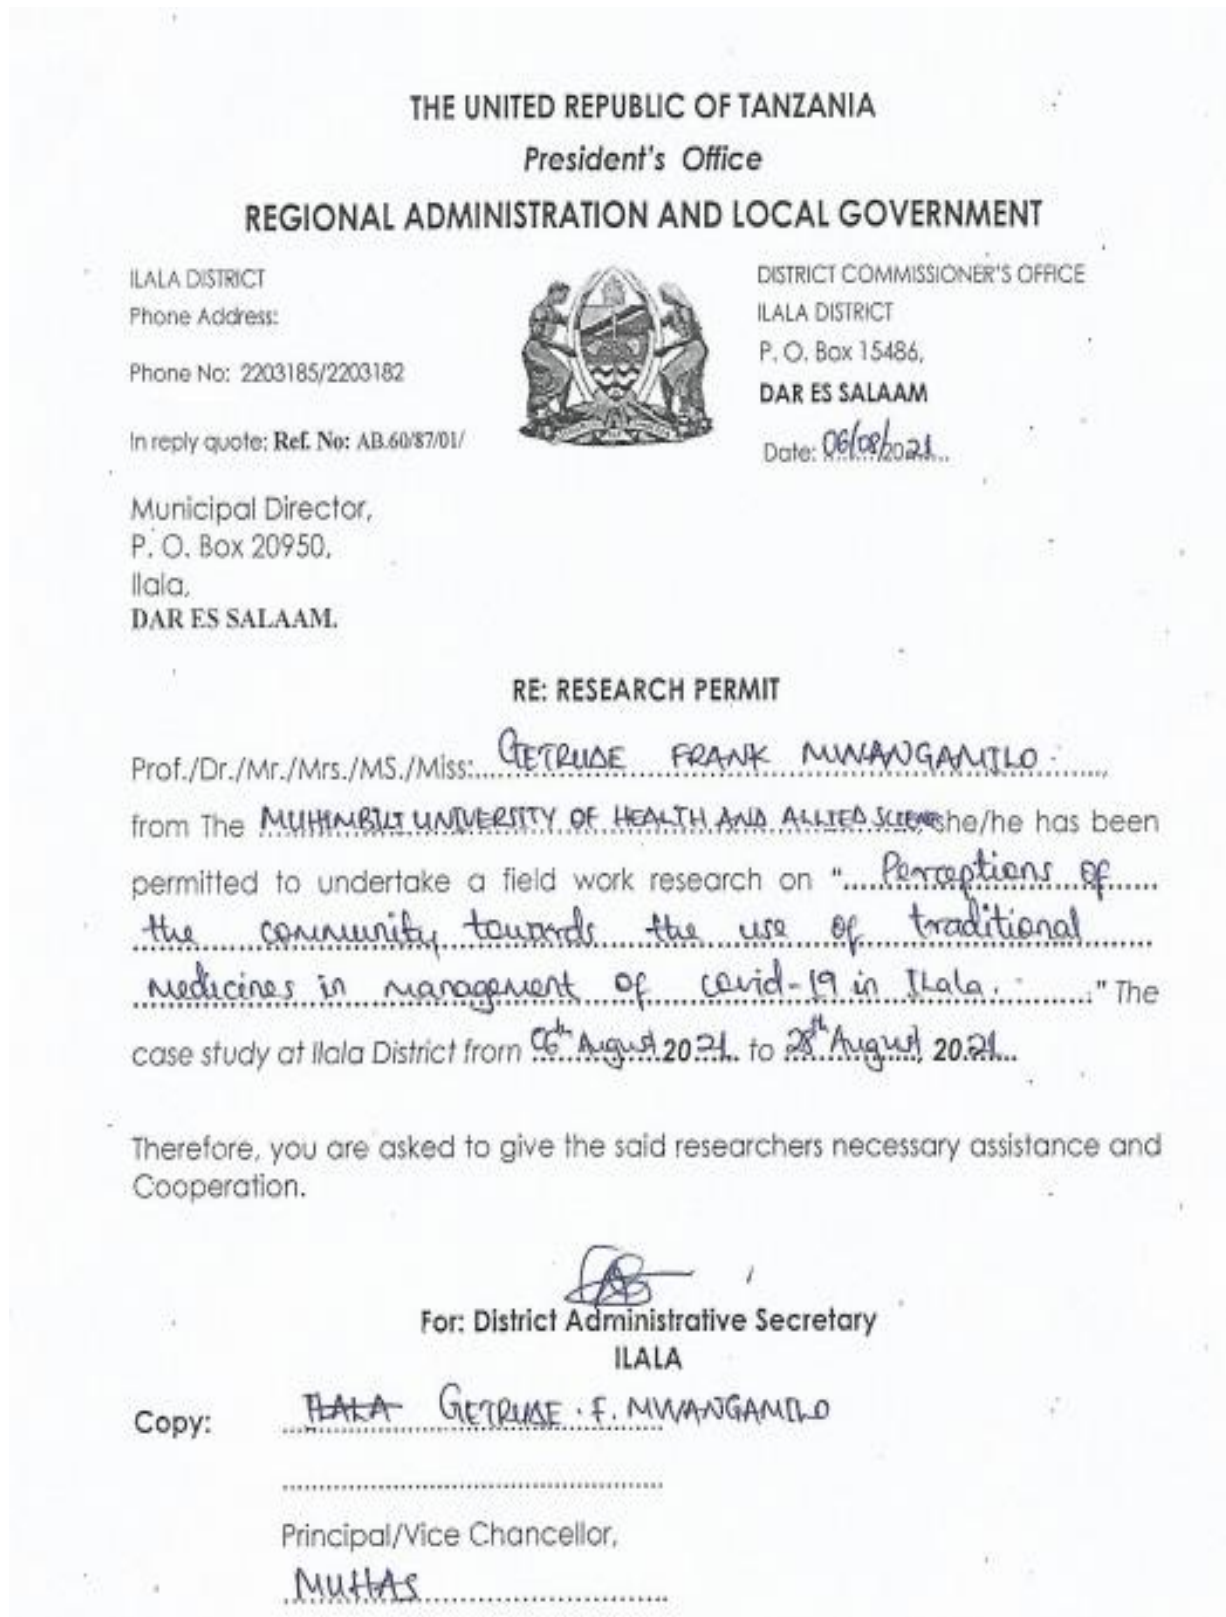 THE UNITED REPUBLIC OF TANZANIA
President's Office
REGIONAL ADMINISTRATION AND LOCAL GOVERNMENT
ILALA DISTRICT
Phone Address:
Phone No: 2203185/2203182
In reply quote: Ref. No: AB.60/87/01/
DISTRICT COMMISSIONER'S OFFICE
ILALA DISTRICT
P. O. Box 15486,
DAR ES SALAAM
Date: 06/08/2021
Municipal Director,
P. O. Box 20950,
Ilala,
DAR ES SALAAM.
RE: RESEARCH PERMIT
Prof./Dr./Mr./Mrs./MS./Miss: GETRUDE FRANK MWANGAMILO
from The MUHIMBILI UNIVERSITY OF HEALTH AND ALLIED she/he has been
permitted to undertake a field work research on "Perceptions of
the community towards the use of traditional
medicines in management of covid-19 in Ilala." The
case study at Ilala District from 06th August 2021 to 28th August, 2021
Therefore, you are asked to give the said researchers necessary assistance and
Cooperation.
For: District Administrative Secretary
ILALA
Copy: ILALA GETRUDE . F. MWANGAMILO
Principal/Vice Chancellor,
MUHAS